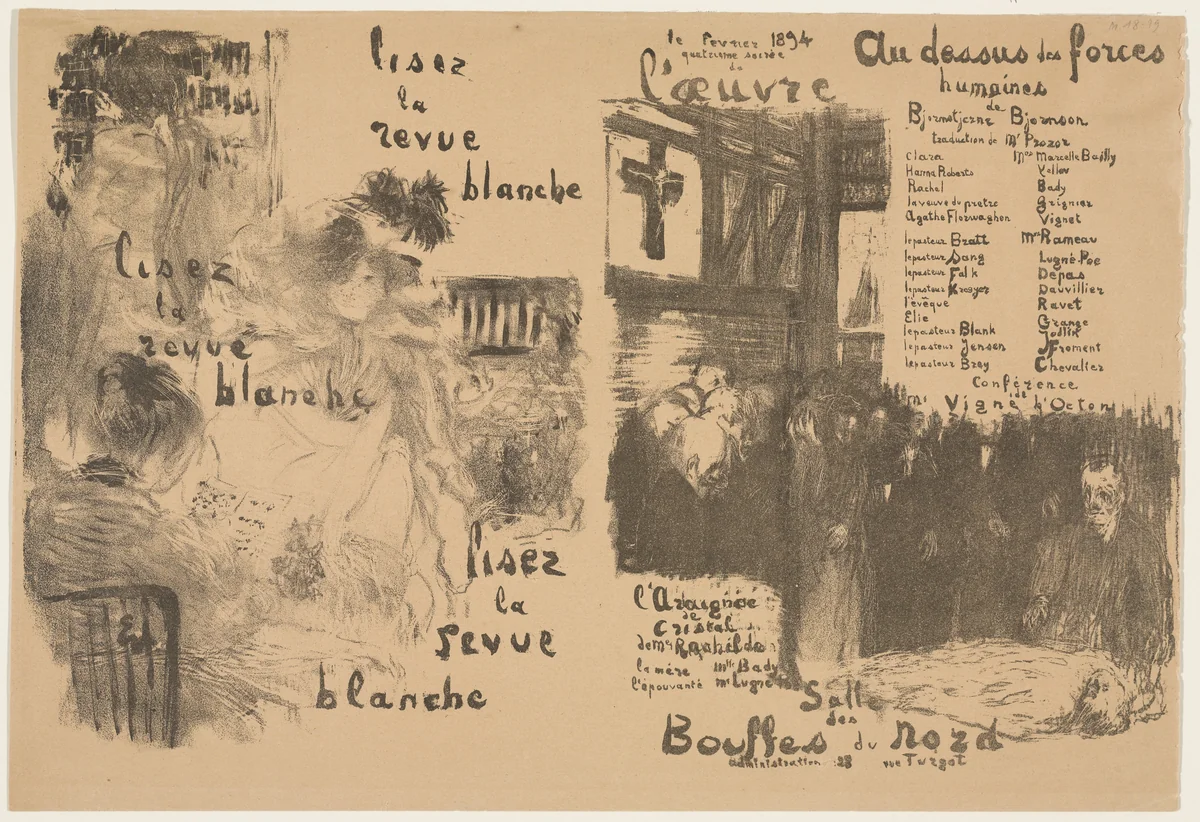 lisez
la
revue
blanche
lisez
la
revue
blanche
lisez
la
revue
blanche
le Fevrier 1894
quatrieme soirée
de
l'œuvre
Au dessus des forces
humaines
de
Bjornstjerne Bjornson
traduction de Mr Prozor
Clara Mmes Marcelle Bailly
Hanna Roberts
Rachel Bady
la veuve du pretre Grignier
Agathe Vignet
le pasteur Bratt Mrs Rameau
le pasteur Sang Lugné-Poe
le pasteur Falk Depas
le pasteur Kroeyer Dauvillier
l'évêque Ravet
Elie Grange
le pasteur Blank
le pasteur Jensen Froment
le pasteur Brey Chevalier
Conférence
de
Mr Vigné d'Octon
l'Araignée
de
Cristal
de Mme Rachilde
la mère Mlle Bady
l'épouvanté Mr Lugné
Salle
des
Bouffes du Nord
administration 23 rue Turgot
M.18-19